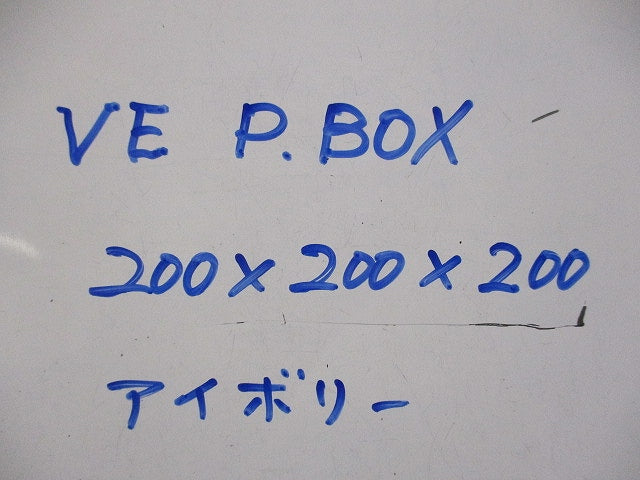 VE P.BOX
200×200×200
アイボリー